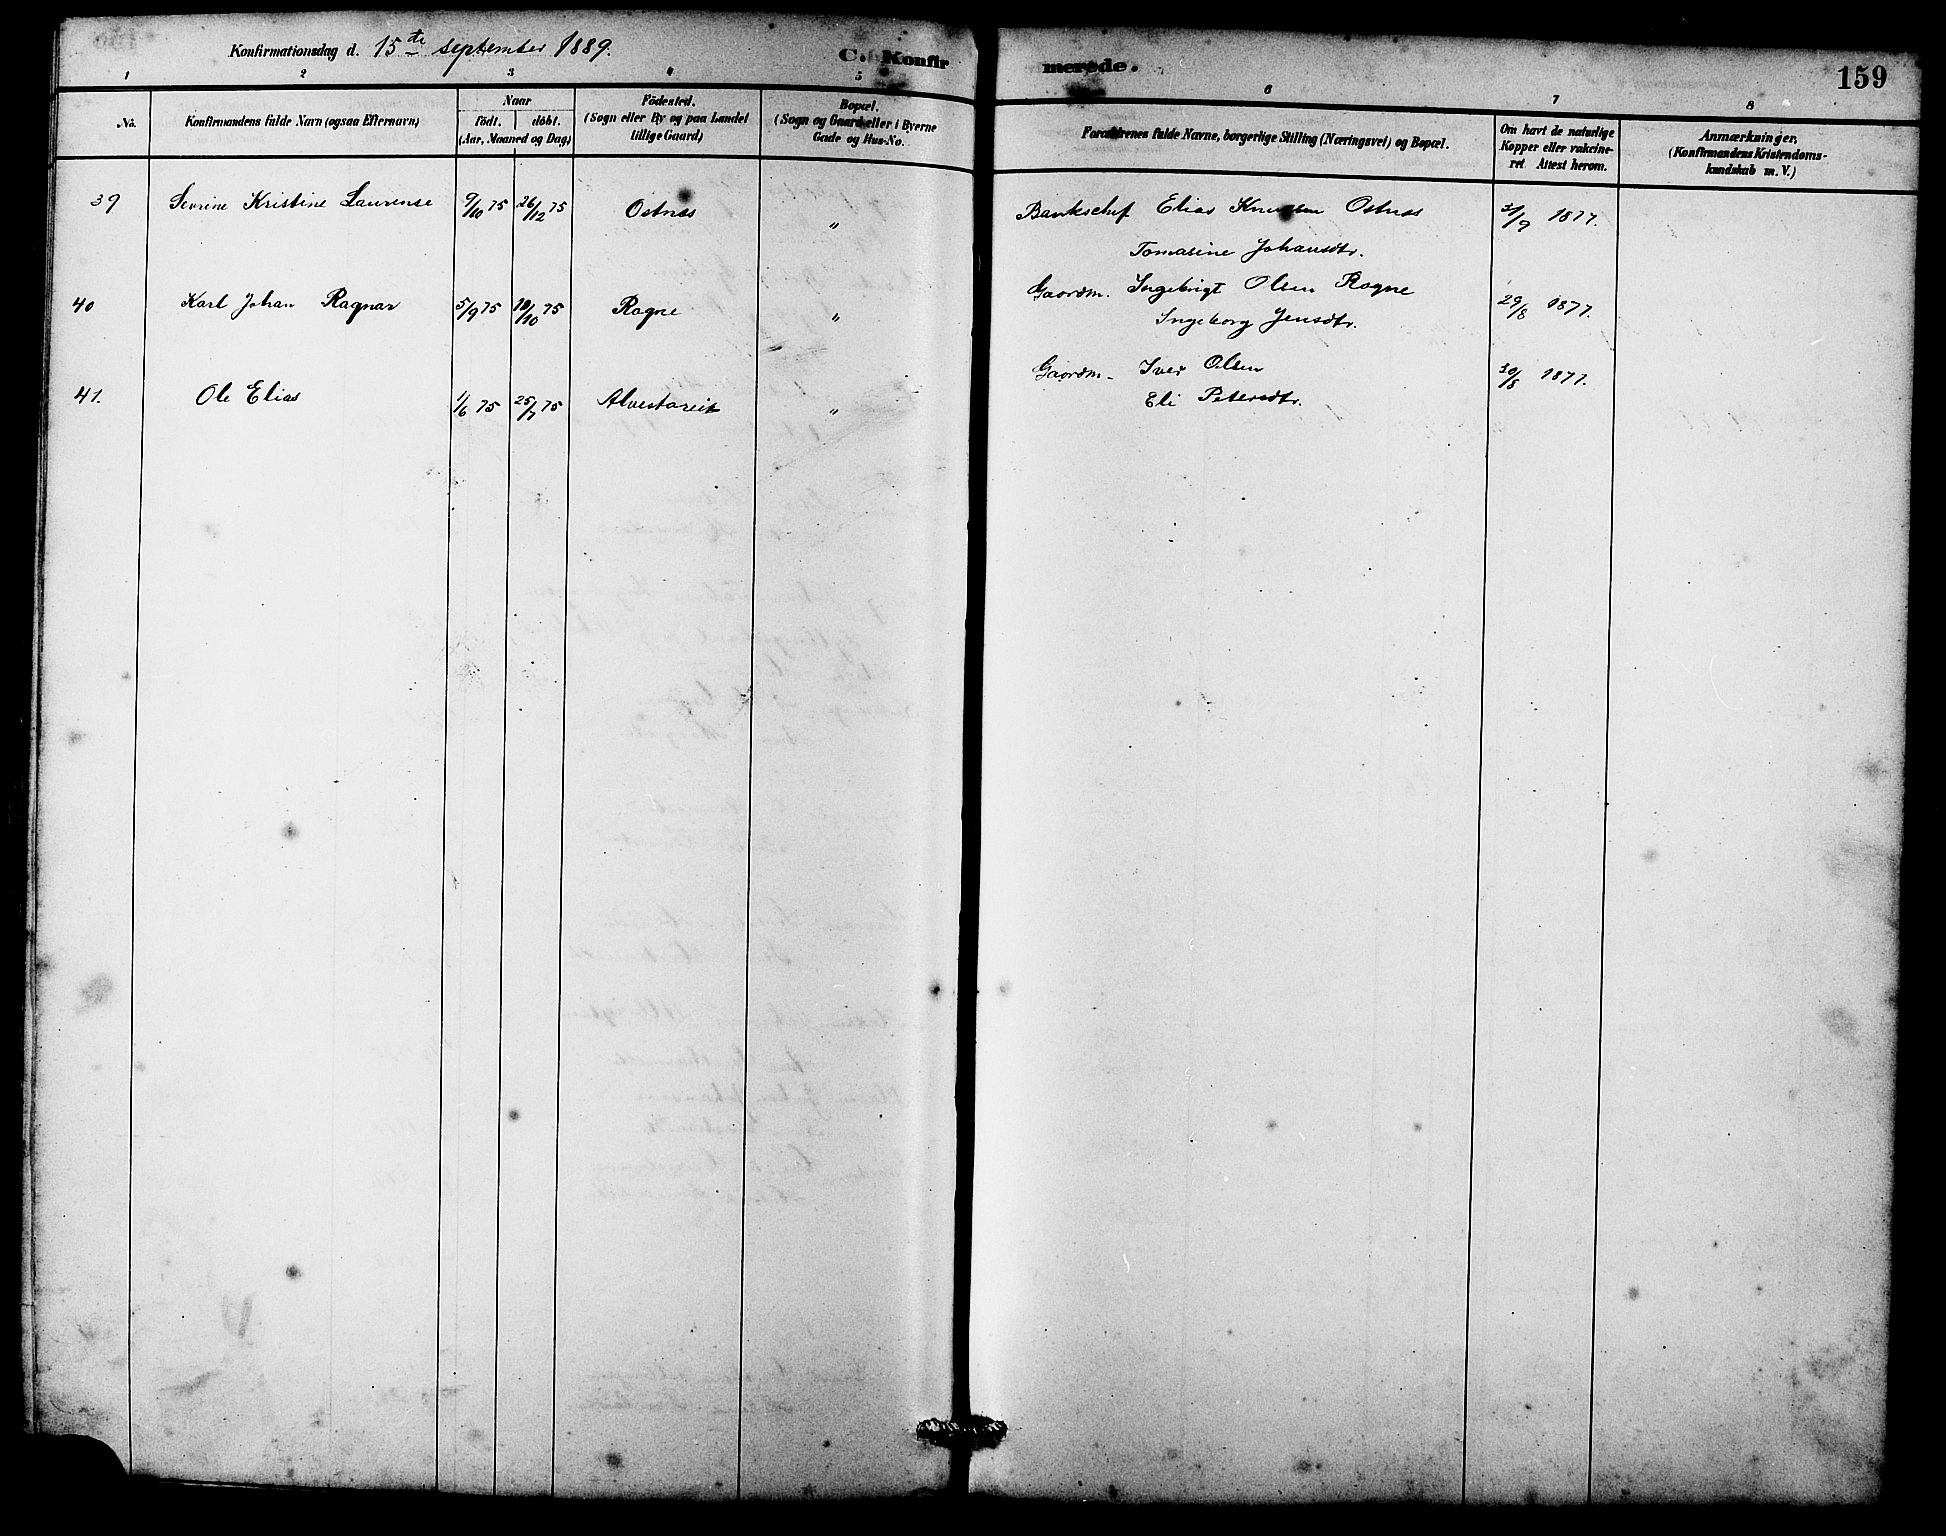 Konfirmationsdag d. 15de september 1889.
C. Konfirmerede.
159
1 2 3 4 5 6 7 8
No.
Konfirmandens fulde Navn (ogsaa Efternavn)
Naar
födt. döbt.
(Aar, Maaned og Dag)
Födested.
(Sogn eller By og paa Landet
tillige Gaard)
Bopæl.
(Sogn og Gaard eller i Byerne
Gade og Hus-No.
Forældrenes fulde Navne, borgerlige Stilling (Næringsvei) og Bopæl.
Om havt de naturlige
Kopper eller vakcine-
ret Attest herom.
Anmærkninger,
(Konfirmandens Kristendoms-
kundskab m. V.)
39 Sevrine Kristine Laurense 9/10 75 26/12 75 Ostnæs " Elias Knudsen Ostnæs /9 1877.
Tomasine Johansdtr.
40 Karl Johan Ragnar 5/9 75 /10 75 Rogne " Gaardm. Ingebrigt Olsen Rogne 29/8 1877.
Ingeborg Jensdtr.
41. Ole Elias 1/6 75 25/7 75 " Gaardm- Iver Olsen 30/8 1877.
Eli Petersdtr.